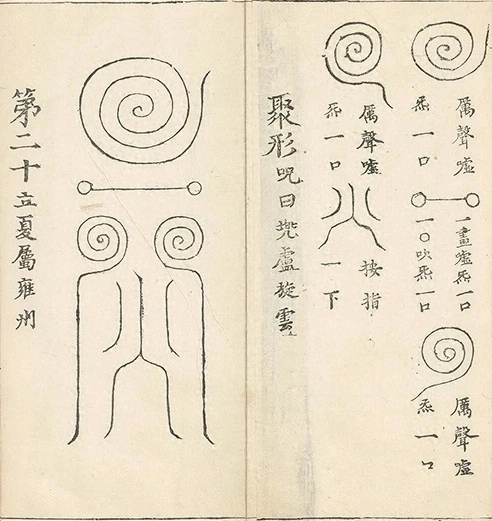 厲聲噓
炁一口
一畫噓炁一口
一〇吹炁一口
厲聲噓
炁一口
厲聲噓
炁一口
按指
一下
聚形咒曰兠盧旋雲
第二十立夏屬雍州